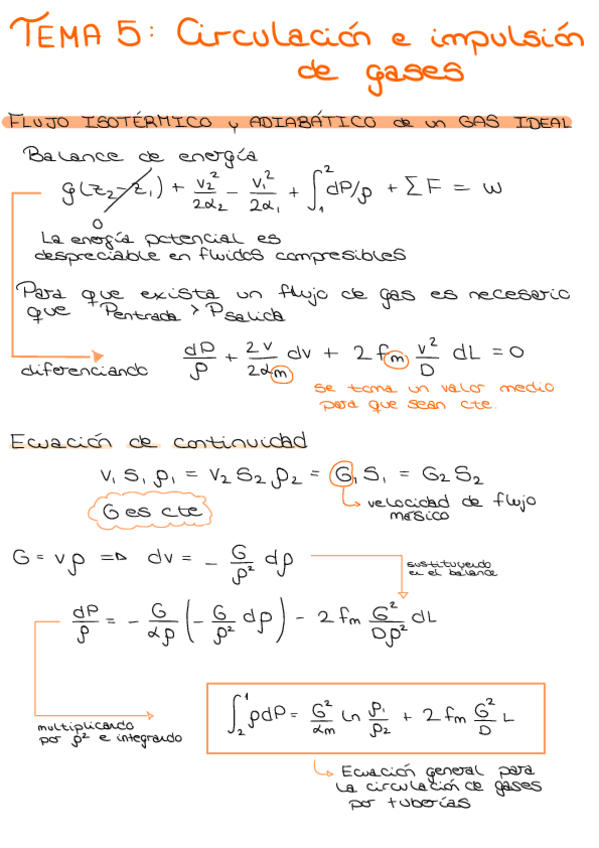 TEMA 5: Circulación e impulsión
de gases
FLUJO ISOTÉRMICO y ADIABÁTICO de un GAS IDEAL
Balance de energía
g(z₂-z₁) + v₂²/2α₂ - v₁²/2α₁ + ∫₁² dP/ρ + ΣF = w
0
La energía potencial es
despreciable en fluidos compresibles
Para que exista un flujo de gas es necesario
que Pentrada > Psalida
diferenciando
dP/ρ + 2v/2αm dv + 2fm v²/D dL = 0
se toma un valor medio
para que sean cte.
Ecuación de continuidad
v₁ S₁ ρ₁ = v₂ S₂ ρ₂ = G₁ S₁ = G₂ S₂
G es cte
velocidad de flujo
másico
G = vρ => dv = - G/ρ² dρ
sustituyendo
en el balance
dP/ρ = - G/αρ (- G/ρ² dρ) - 2fm G²/Dρ² dL
multiplicando
por ρ² e integrando
∫₂¹ ρdP = G²/αm ln ρ₁/ρ₂ + 2fm G²/D L
Ecuación general para
la circulación de gases
por tuberías